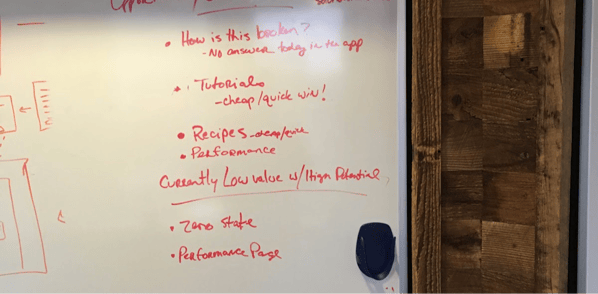 • How is this broken?
- No answer today in the app
• Tutorials
- cheap/quick win!
• Recipes - cheap/quick
• Performance
Currently Low value w/ High Potential
• Zero State
• Performance Page